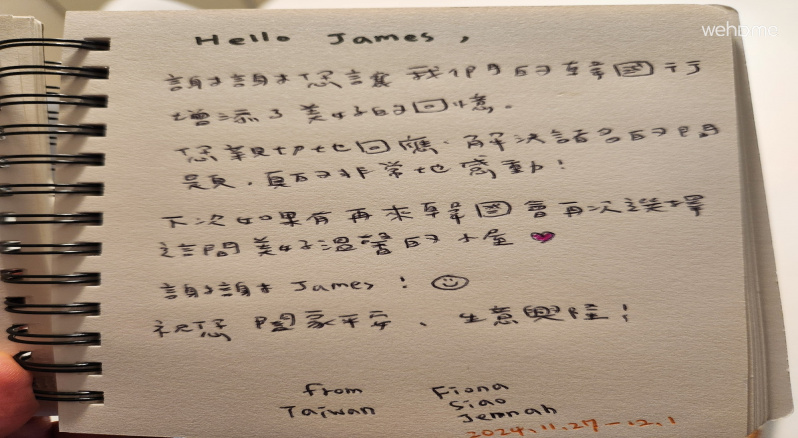 Hello James,
謝謝您讓我們的韓國行
增添了美好的回憶。
您親切地回應、解決諸多的問
題，真的非常地感動！
下次如果有再來韓國會再次選擇
這間美好溫馨的小屋
謝謝 James！
祝您 闔家平安、生意興隆！
from Fiona
Taiwan Siao
Jennah
2024.11.27-12.1